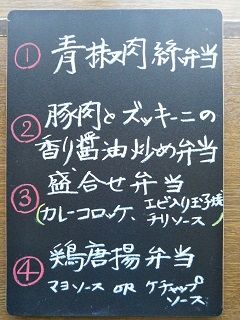 ① 青椒肉絲弁当
② 豚肉とズッキーニの
香り醤油炒め弁当
③ 盛合せ弁当
(カレーコロッケ、エビ入り玉子焼
チリソース)
④ 鶏唐揚弁当
マヨソース OR ケチャップ
ソース